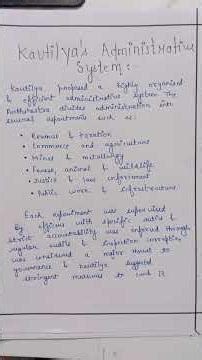 Kautilya's Administrative
System :-
Kautilya proposed a highly organised
& efficient administrative system. The
Arthashastra divides administration into
several departments such as :
• Revenue & taxation
• Commerce and agriculture
• Mines & metallurgy
• Forest, animal & wildlife
• Justice & law enforcement
• Public work & infrastructure
Each department was supervised
By officers with specific duties &
strict accountability was enforced through
regular audits & inspection corruption
was considered a major threat to
governance & Kautilya suggested
stringent measures to curb it